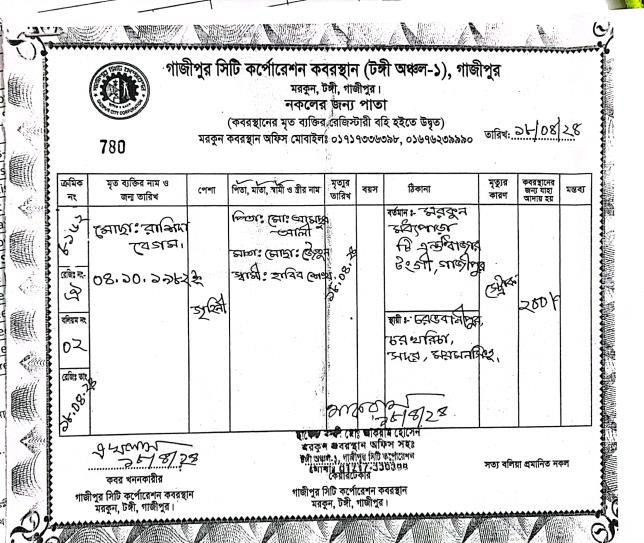 গাজীপুর সিটি কর্পোরেশন কবরস্থান (টঙ্গী অঞ্চল-১), গাজীপুর
মরকুন, টঙ্গী, গাজীপুর।
নকলের জন্য পাতা
(কবরস্থানের মৃত ব্যক্তির রেজিস্টারী বহি হইতে উদ্বৃত)
মরকুন কবরস্থান অফিস মোবাইলঃ ০১৭১৭৩৩৬৩৯৮, ০১৬৭৬২৩৯৯৯০
তারিখঃ ১৮/০৪/২৪
780
ক্রমিক নং
মৃত ব্যক্তির নাম ও জন্ম তারিখ
পেশা
পিতা, মাতা, স্বামী ও স্ত্রীর নাম
মৃত্যুর তারিখ
বয়স
ঠিকানা
মৃত্যুর কারণ
কবরস্থানের জন্য যাহা আদায় হয়
মন্তব্য
মোছা: রাশিদা
বেগম।
০৪.১০.১৯৮২ইং
গৃহিনী
পিতা: মো:
আলী
মাতা: মোছা:
স্বামী: হাবিব
১৮.০৪.২৪
বর্তমান :- মরকুন
মধ্যপাড়া
টি এন্ড বাজার
টংগী, গাজীপুর
স্ট্রোক
২০০/
রেজিঃ নং-
ঐ
বলিয়ম নং
০২
রেজিঃ তাং
১৮.০৪.২৪
স্থায়ী :- চরভবানীপুর,
চর খরিচা,
সদর, ময়মনসিংহ,
১৮/৪/২৪
১৮/৪/২৪
মোঃ আকরাম হোসেন
মরকুন কবরস্থান অফিস সহঃ
টঙ্গী অঞ্চল-১, গাজীপুর সিটি কর্পোরেশন
কেয়ারটেকার
গাজীপুর সিটি কর্পোরেশন কবরস্থান
মরকুন, টঙ্গী, গাজীপুর।
কবর খননকারীর
গাজীপুর সিটি কর্পোরেশন কবরস্থান
মরকুন, টঙ্গী, গাজীপুর।
সত্য বলিয়া প্রমানিত নকল